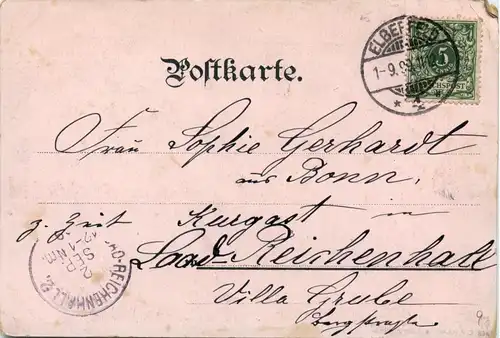 Postkarte.
ELBERFELD
1-9.9
5
REICHSPOST
Frau Sophie Gerhardt
aus Bonn,
z. Zeit Kurgast in
Bad Reichenhall
Villa Grube
BAD-REICHENHALL 2.
2
SEP.
12-1 Nm.